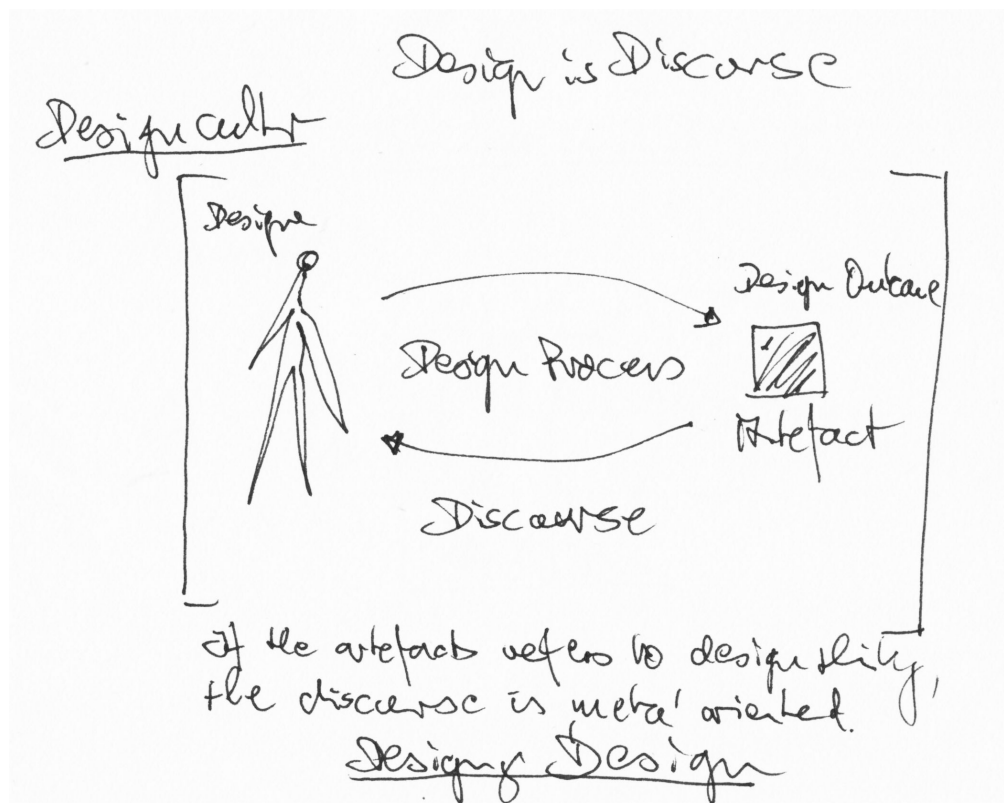 Design is Discourse
Design cult
Designe
Design Outcome
Design Process
Artefact
Discourse
If the artefacts refers to design
the discourse is meta' oriented.
Designing Design